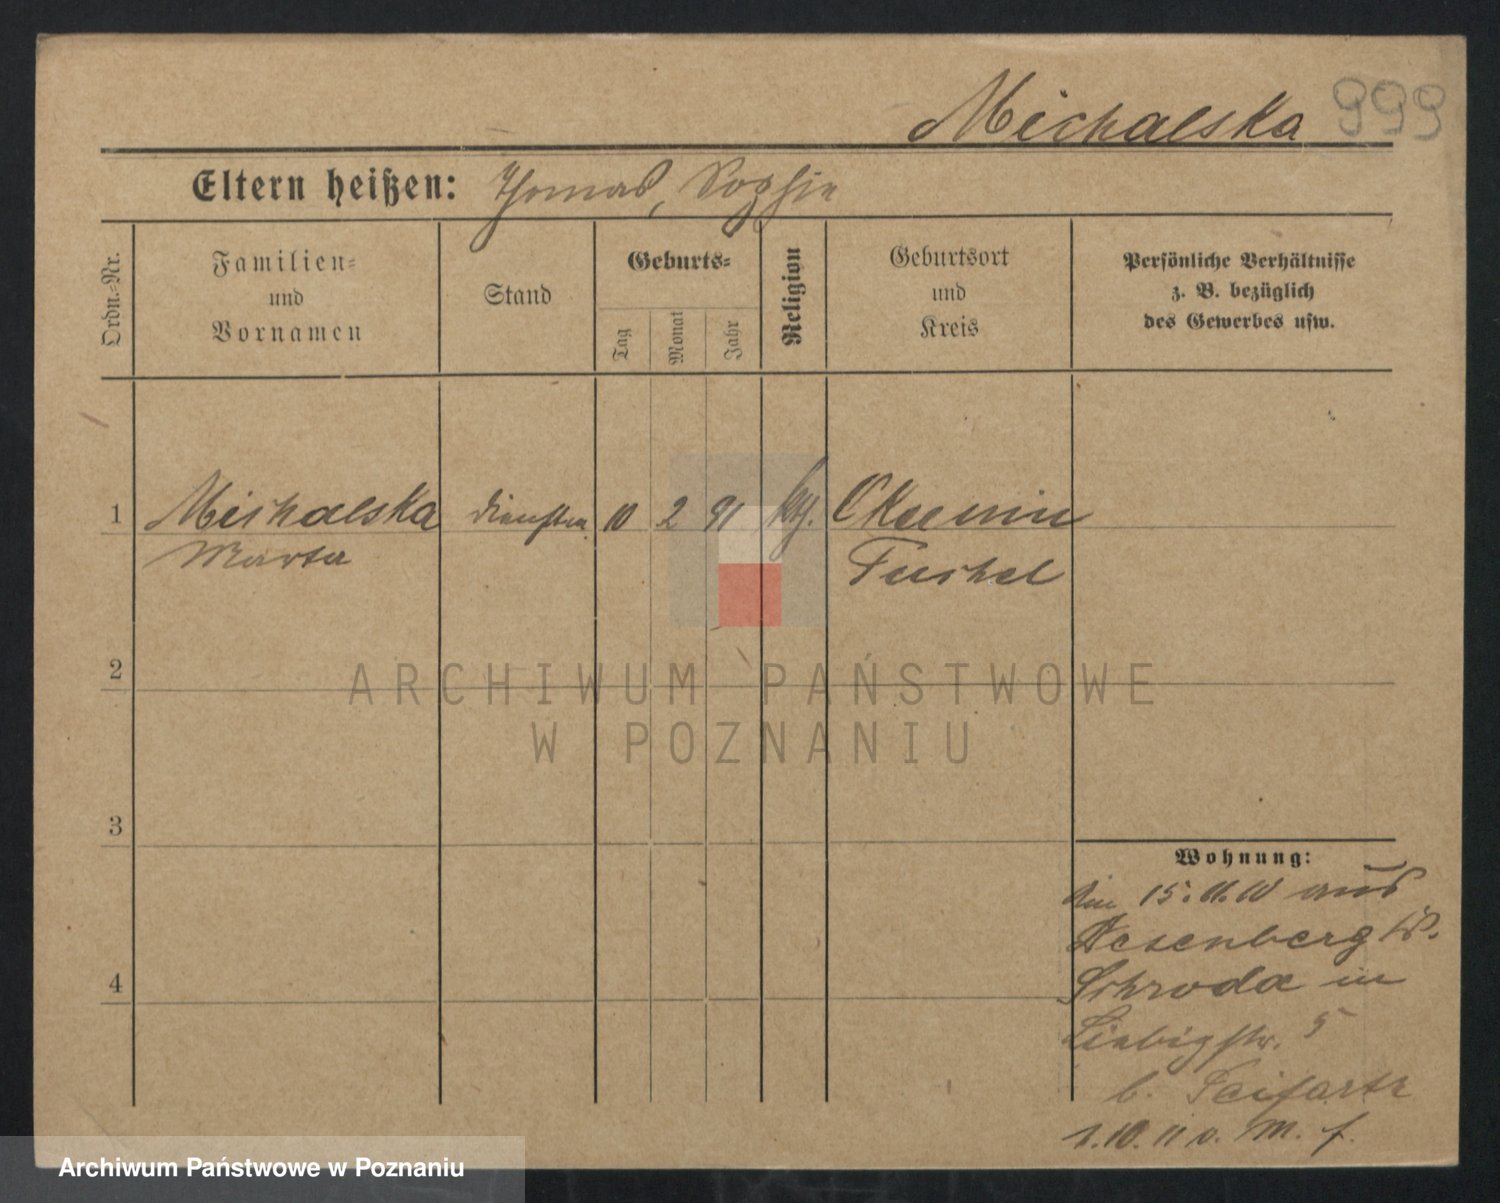 Michalska 999
Eltern heißen: Thomas, Sophie
Ordn.-Nr.
Familien-
und
Vornamen
Stand
Geburts-
Tag
Monat
Jahr
Religion
Geburtsort
und
Kreis
Persönliche Verhältnisse
z. B. bezüglich
des Gewerbes usw.
1 Michalska 10 2 91 kth.
Marta Tuchel
2
3
4
Wohnung:
15.11.10 aus
Schroda in
Liebigstr. 5
b. Seifarth
1.10.11 v. M. f.
ARCHIWUM PAŃSTWOWE
W POZNANIU
Archiwum Państwowe w Poznaniu